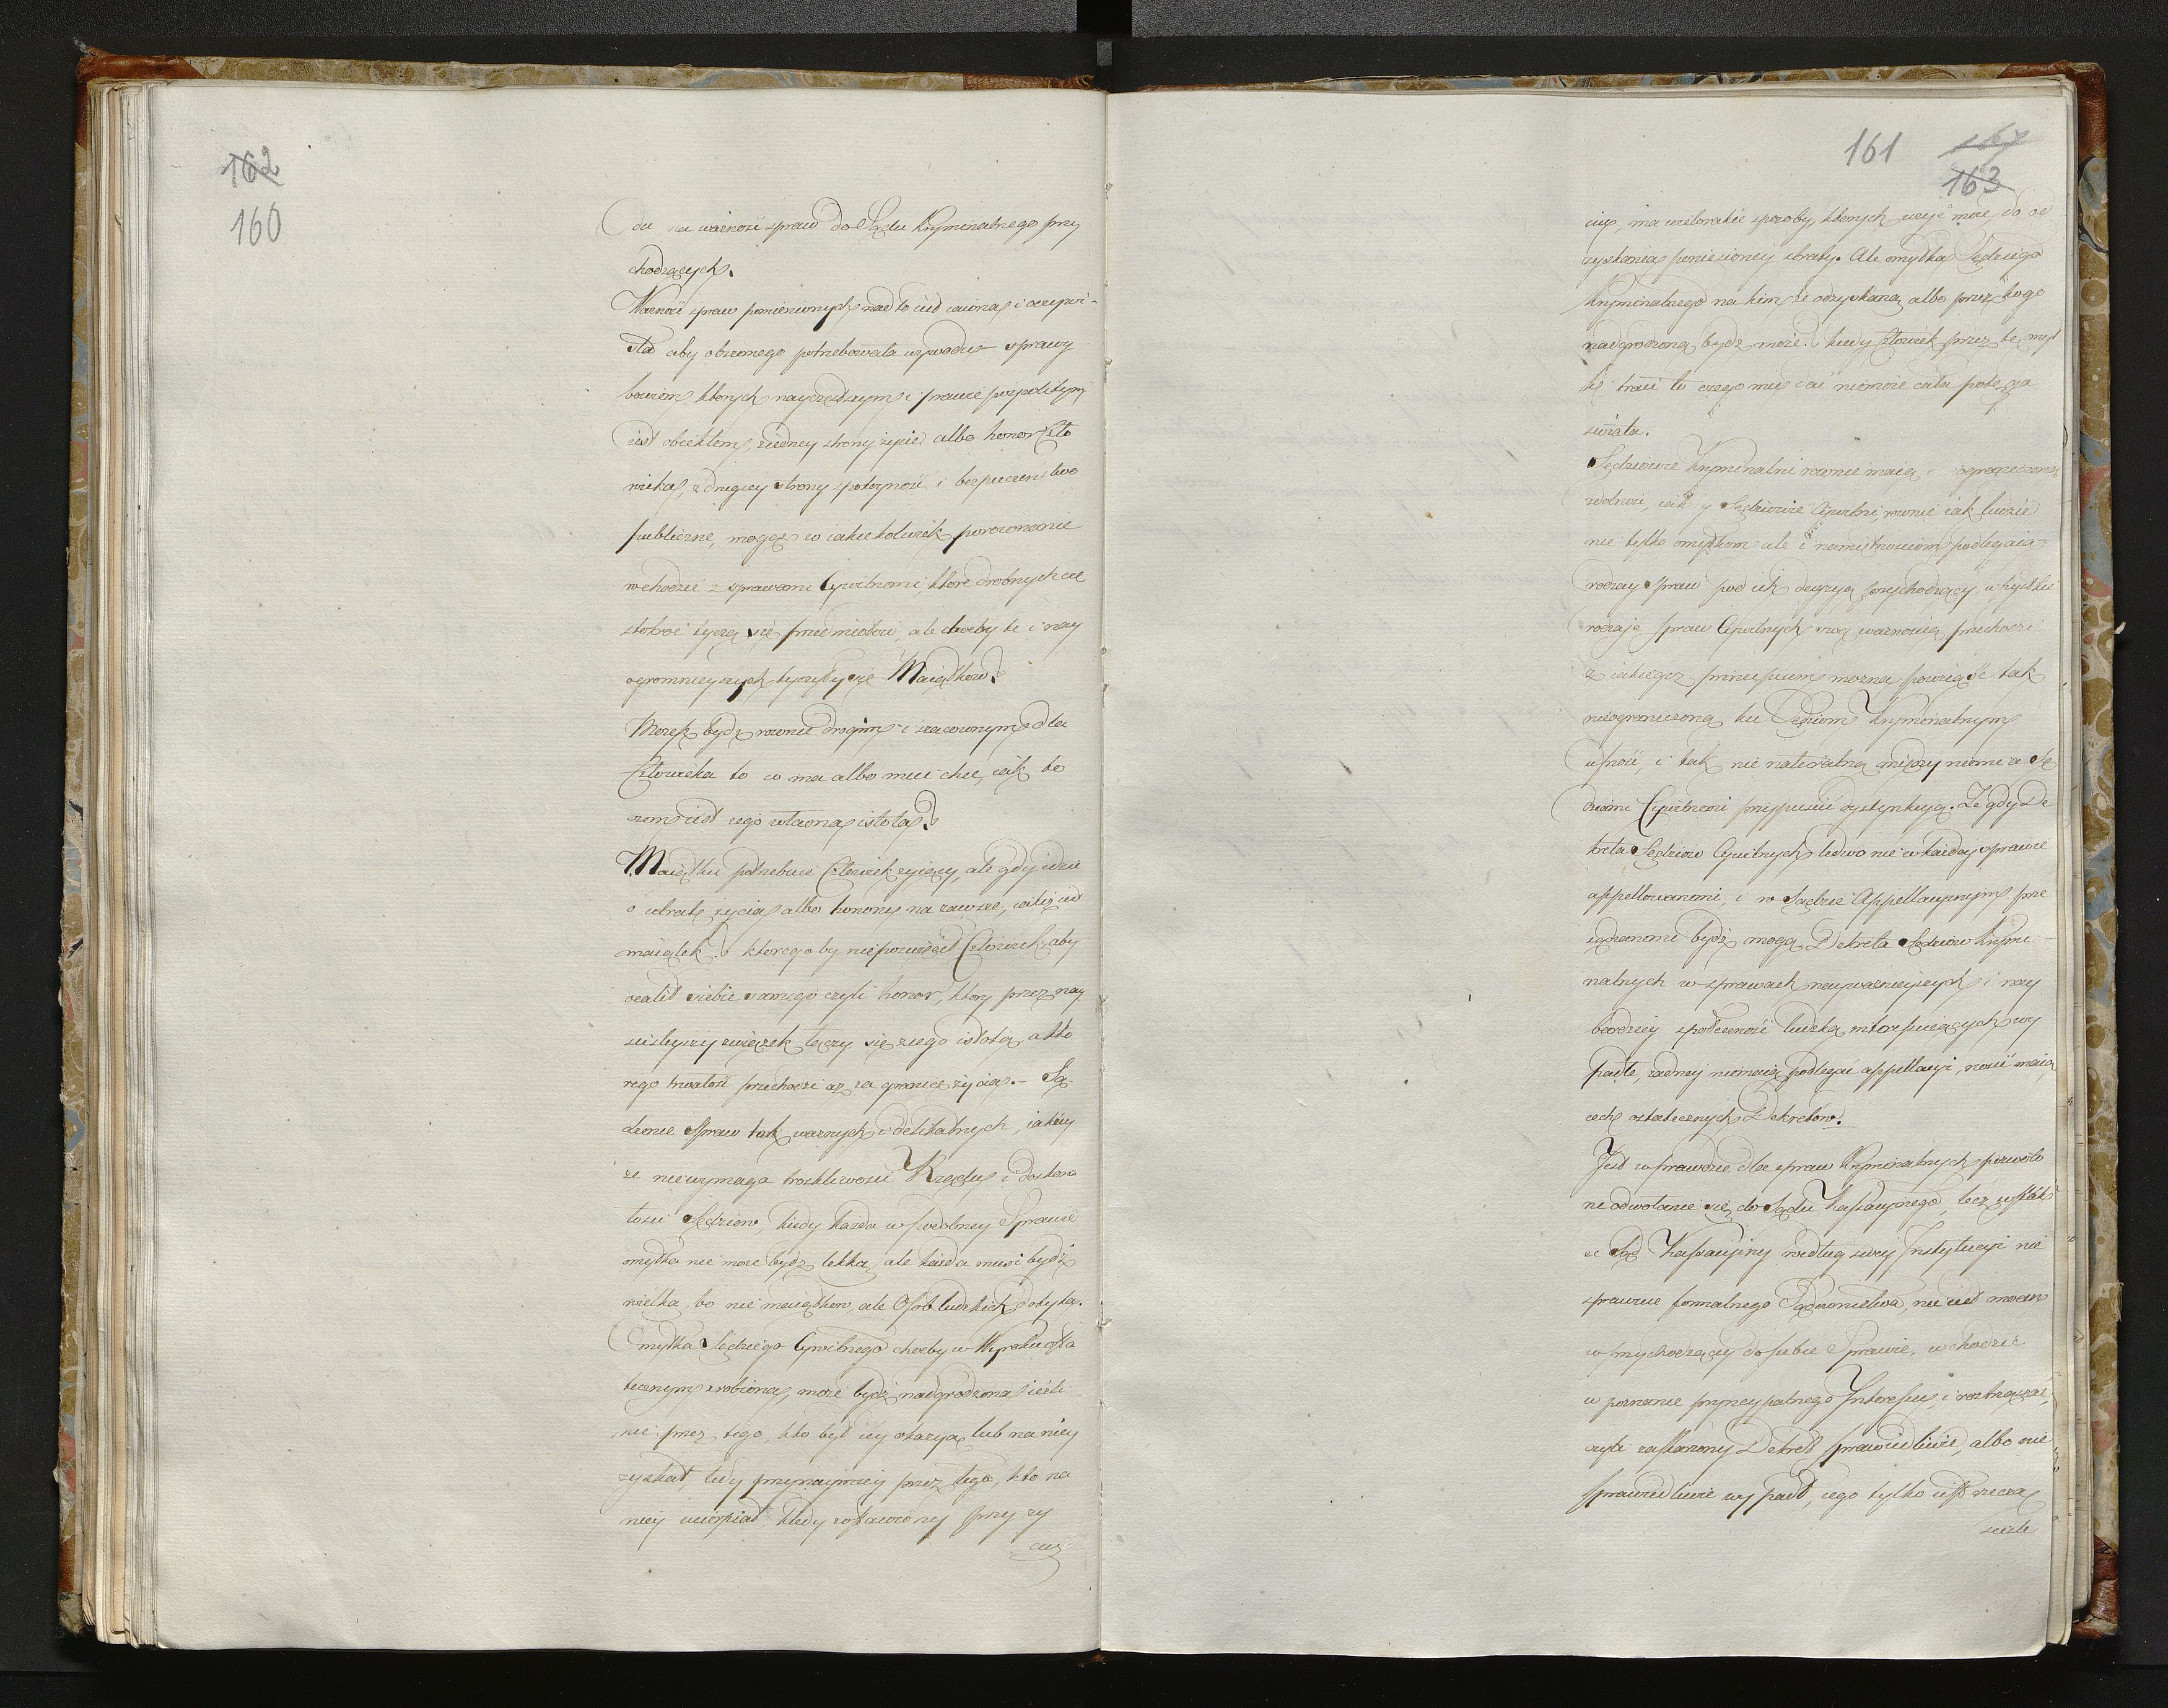 162
160
du na ważność spraw do Sądu Kryminalnego przy
chodzących.
Ważność spraw pomienionych nadto iest iawna i oczywi-
sta aby obszernego potrzebowała wywodu sprawy
bowiem których nayczęstszym i prawie pospolitym
iest obiektem, z iedney strony życie albo honor Czło
wieka, z drugiey strony spokoyność i bezpieczeństwo
publiczne, mogąż w iakiekolwiek porownanie
wchodzić z sprawami Cywilnemi, które drobnych ale
stokroć tyczą się przedmiotow, ale choćby te i nay
ogromnieyszych tyczyły się Maiątkow?
Możeż bydz rownie drogim i szacownym dla
Człowieka to co ma albo mieć chce, iak to
czem iest iego własna istota?
Maiątku potrzebuie Człowiek żyiący, ale gdy idzie
o utratę życia albo honoru na zawsze, iakiż iest
maiątek, któregoby niepoświęcił Człowiek, aby
ocalił siebie samego czyli honor, ktory przez nay
ściśleyszy związek łączy się z iego istotą, a któ
rego trwałość przechodzi aż za granice życia. – Są
dzenie Spraw tak ważnych i delikatnych, iakiey
że niewymaga troskliwości Rządu i doskona
łości Sędziow, kiedy każda w podobney Sprawie
omyłka nie może bydz lekka, ale każda musi bydź
wielka, bo nie maiątkow, ale Osob ludzkich dotyka.
Omyłka Sędziego Cywilnego choćby w Wyroku osta
tecznym zrobiona, może bydź nadgrodzona ieśli
nie przez tego, kto był iey okazyą, lub na niey
zyskał, tedy przynaymniey przez tego, kto na
niey ucierpiał, kiedy zostawiony przy ży
ciu
161 167
163
ciu, ma wielorakie sposoby, ktorych użyć może do od
zyskania poniesioney straty. Ale omyłka Sędziego
Kryminalnego na kimże odzyskaną albo przez kogo
nadgrodzoną bydz może, kiedy Człowiek przez tę omył
kę traci to czego mu dać niemoże cała potęga
świata.
Sędziowie Kryminalni rownie maią ograniczoną
zdolność, iak y Sędziowie Cywilni, rownie iak ludzie
nie tylko omyłkom ale i namiętnościom podlegaią
rodzay spraw pod ich decyzyą przychodzący wszystkie
rodzaje spraw Cywilnych swą ważnością przechodzi
z iakiegoż principium można powziąść tak
nieograniczoną ku Sędziom Kryminalnym
ufność, i tak nie naturalną między niemi a Sę
dziami Cywilnemi przypuścić dystynkcyą. Że gdy De
kreta Sędziow Cywilnych ledwo nie w każdey sprawie
appellowanemi, i w Sądzie Appellacyinym prze
sądzonemi bydź mogą, Dekreta Sędziow Krymi-
nalnych w sprawach nayważnieyszych i nay
bardziey społeczność ludzką interesuiących wy
padłe, żadney niemaią podlegać appellacyi, nosić maią
cechę ostatecznych Dekretów.
Jest wprawdzie dla spraw Kryminalnych pozwolo
ne odwołanie się do Sądu Kassacyinego, lecz wszak
że Sąd Kassacyiny według swey Instytucyi nie
sprawuie formalnego Sądownictwa, nie iest mocen
w przychodzącey do siebie Sprawie, wchodzić
w poznanie pryncypalnego Interessu, i roztrząsać,
czyli zaskarżony Dekret sprawiedliwie, albo nie
sprawiedliwie wypadł, iego tylko iest rzeczą
ściśle